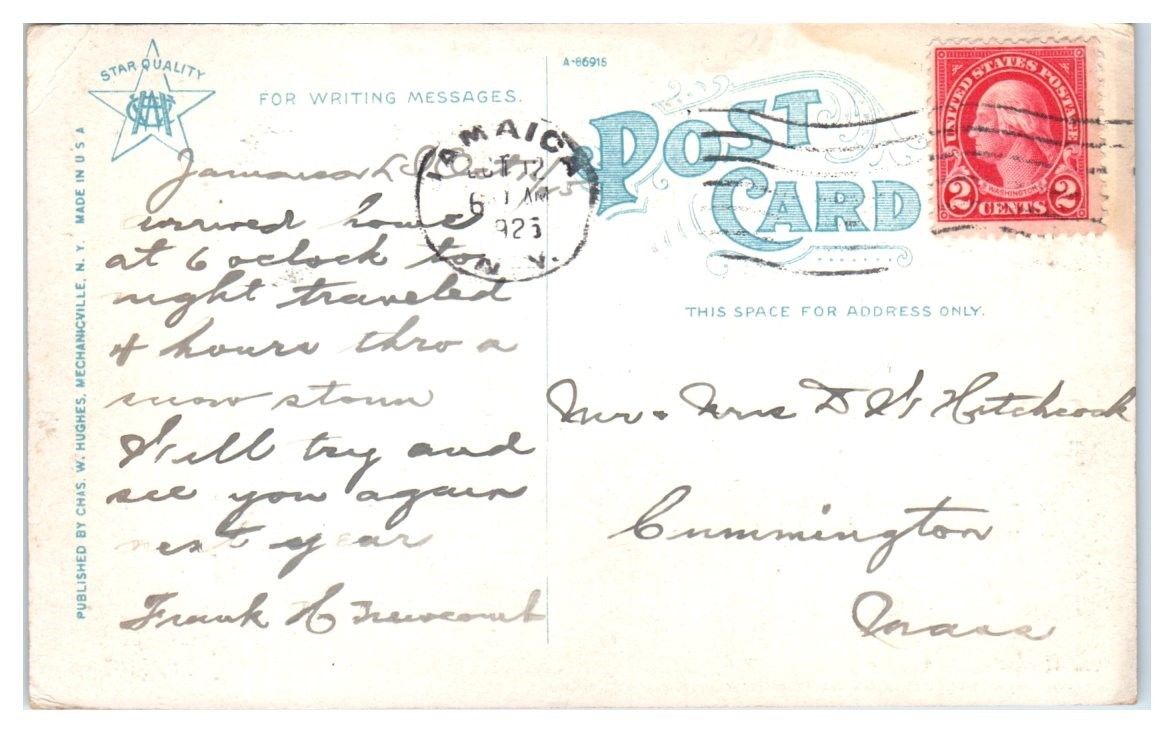 STAR QUALITY
CWH
FOR WRITING MESSAGES.
A-86915
POST CARD
UNITED STATES POSTAGE
WASHINGTON
2 CENTS 2
JAMAICA
OCT 12
AM
N.Y.
PUBLISHED BY CHAS. W. HUGHES, MECHANICVILLE, N. Y. MADE IN U S A
Jamaica L
arrived home
at 6 oclock to
night traveled
4 hours thro a
snow storm
Will try and
see you again
next year
Frank H Newcomb
THIS SPACE FOR ADDRESS ONLY.
Mr & Mrs D W Hitchcock
Cummington
Mass